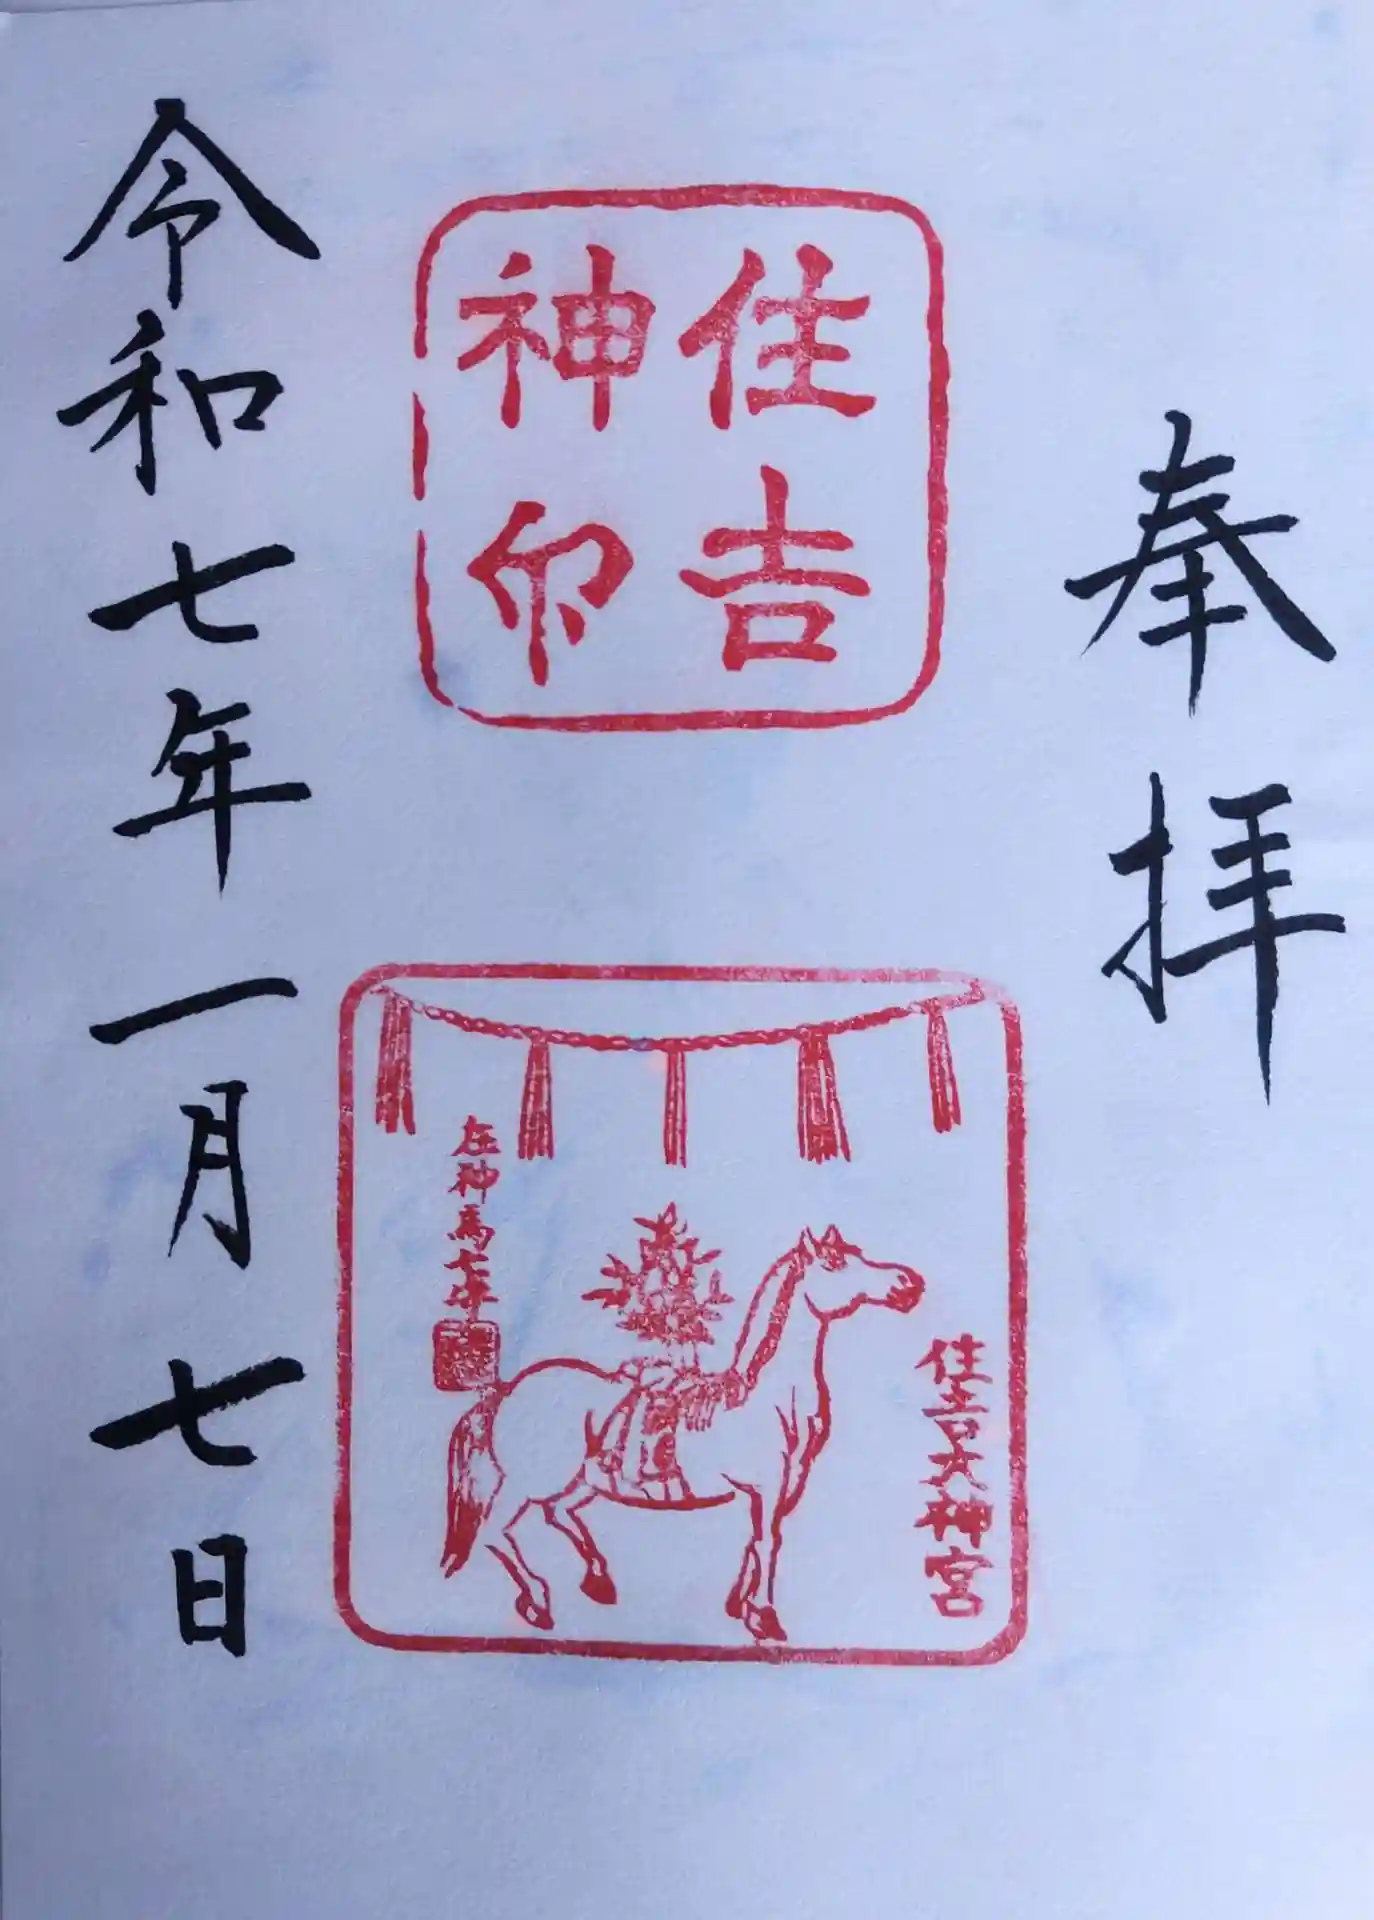 奉拝
住吉
神印
住吉大神宮
神馬七
令和七年一月七日